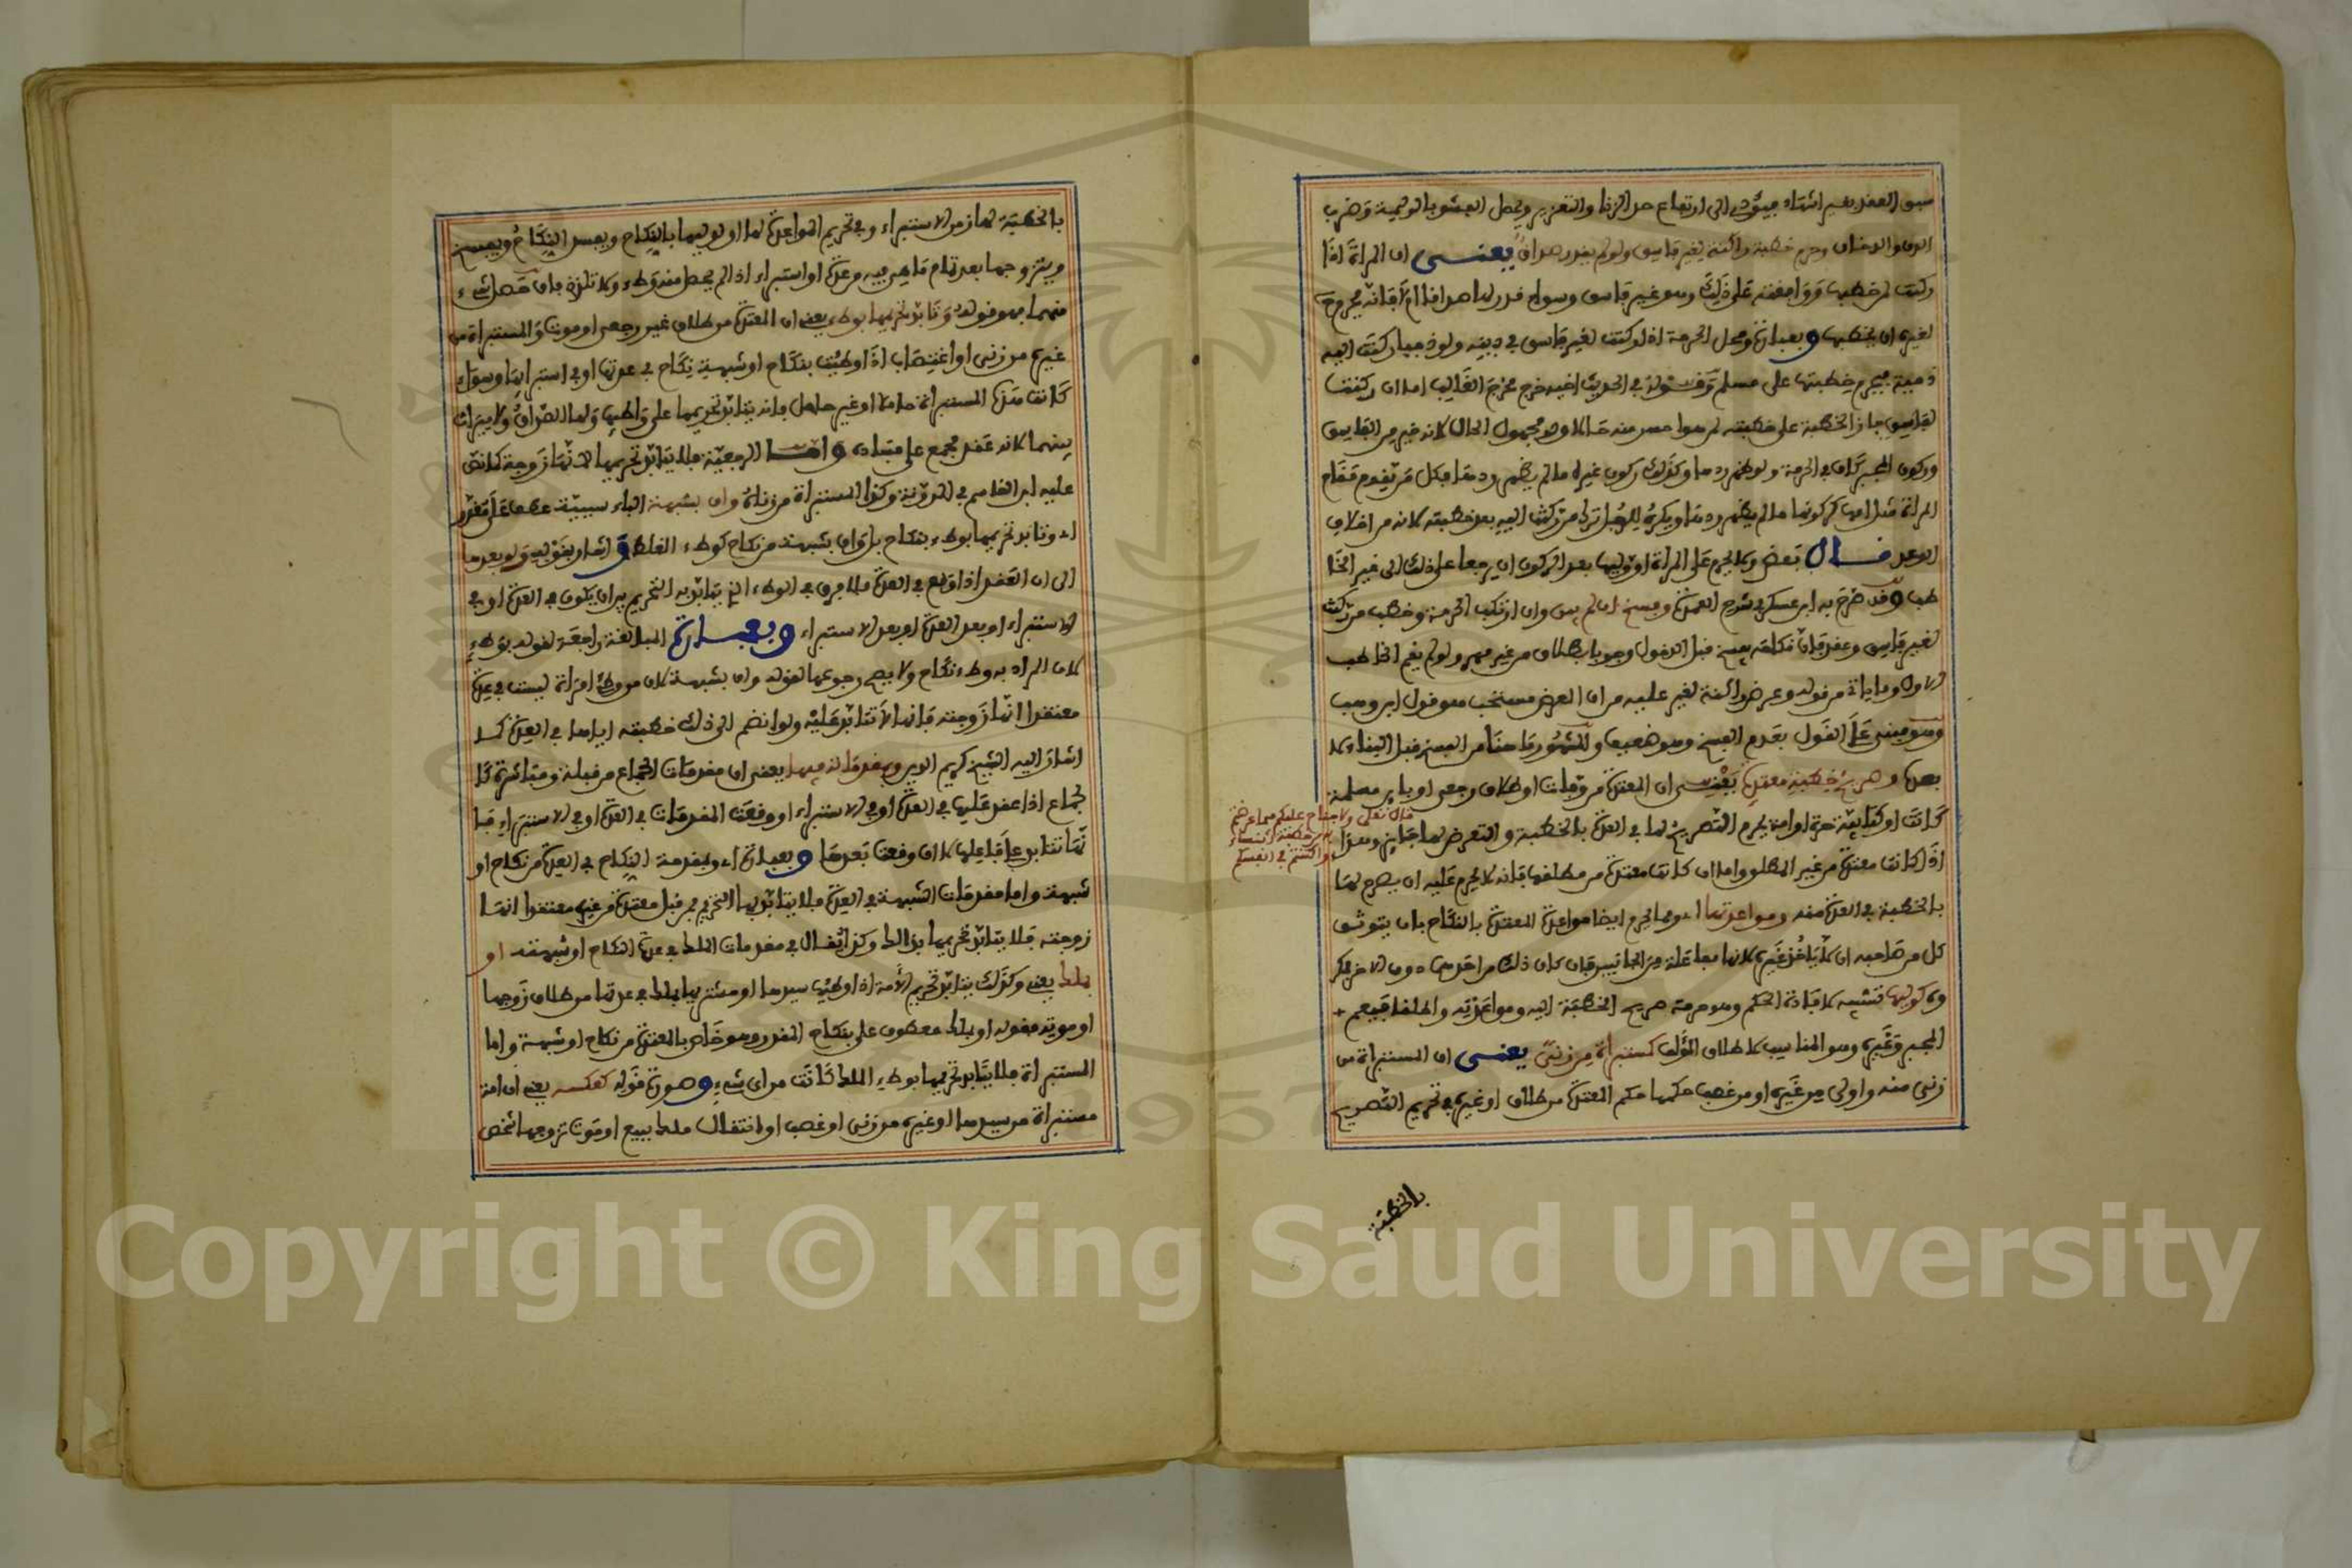 سبق العقد بغير اشهاد فيؤدي الى ارتفاع حد الزنا والتعزير ويحصل الفشو بالوليمة وضرب
الدف والدخان وحرم خطبة راكنة لغير فاسق ولو لم يقدر صداق يعنى ان المراة اذا
ركنت لمن خطبها ووافقته على ذلك وهو غير فاسق وسواء قدر لها صداقا ام لا فانه يحرم
لغيره ان يخطبها وبعبارة ومحل الحرمة اذا ركنت لغير فاسق في دينه ولو ذميا ركنت اليه
ذمية فيحرم خطبتها على مسلم وقوله في الحديث اخيه خرج مخرج الغالب اما ان ركنت
لفاسق جاز الخطبة على خطبته لمن هو احسن منه حالا وهو مجهول الحال لانه خير من الفاسق
وركون المجبر كاف في الحرمة ولو ظهر ردها وكذلك ركون غيره ما لم يظهر ردها وكل من يقوم مقام
المراة مثل امها كركونها ما لم يظهر ردها ويكره للرجل ترك من ركنت اليه بعد خطبته لانه من اخلاف
الوعد قال بعض ولا يحرم على المراة او وليها بعد الركون ان يرجعا على ذلك الى غير الخا
طب وقد صرح به ابن عسكر في شرح العمدة وفسخ ان لم يبن وان ارتكب الحرمة وخطب من ركنت
لغير فاسق وعقد فان نكاحه يفسخ قبل الدخول وجوبا بطلاق من غير مهر ولو لم يقم الخاطب
الاول وما ياتي من قوله وعرض راكنة لغير عليه من ان العرض مستحب هو قول ابن وهب
وهو مبني على القول بعدم الفسخ وهو ضعيف والمشهور ما هنا من الفسخ قبل البناء لا
بعده وصريح خطبة معتدة يعنى ان المعتدة من وفات او طلاق رجعي او باين مسلمة
كانت او كتابية حرة او امة يحرم التصريح لها في العدة بالخطبة والتعرض لها جايز وهذا
قال تعلى ولا جناح عليكم فيما عرضتم
به من خطبة النساء
او اكننتم في انفسكم
اذا كانت معتدة من غير المطلق واما ان كانت معتدة من مطلقها فانه لا يحرم عليه ان يصرح لها
بالخطبة في العدة منه ومواعدتها اي ومما يحرم ايضا مواعدة المعتدة بالنكاح بان يتوثق
كل من صاحبه ان لا ياخذ غيره لانها مفاعلة من الجانبين فان كان ذلك من احدهما دون الاخر فيكره
وكوليها تشبيه لافادة الحكم وهو حرمة صريح الخطبة اليه ومواعدته واطلقا فيعم
المجبر وغيره وهو المناسب لاطلاق المؤلف كمستبراة من زنى يعنى ان المستبراة من
زنى منه واولى من غيره او من غصب حكمها حكم المعتدة من طلاق او غيره في تحريم التصريح
بالخطبة
بالخطبة لها زمن الاستبراء وفي تحريم المواعدة لها او لوليها بالنكاح ويفسد النكاح ويفسخ
ويتزوجها بعد تمام ما هي فيه من عدة او استبراء اذا لم يحصل منه وطء ولا تلذذ فان حصل شيء
منهما فهو قوله وتابد تحريمها بوطء يعني ان المعتدة من طلاق غير رجعي او موت والمستبراة من
غيره من زنى او اغتصاب اذا وطيت بنكاح او شبهة نكاح في عدتها او في استبرايها وسواء
كانت هذه المستبراة حاملا او غير حامل فانه يتابد تحريمها على واطيها ولها الصداق ولا ميراث
بينهما لانه عقد مجمع على فساده واما الرجعية فلا يتابد تحريمها لانها زوجة كما نص
عليه ابن القاسم في المدونة وكذا المستبراة من زناه وان بشبهة الباء سببية عطف على مقدر
اي وتابد تحريمها بوطء بنكاح بل وان بشبهة من نكاح كوطء الغلط واشار بقوله ولو بعدها
الى ان العقد اذا وقع في العدة فلا فرق في الوطء الذي يتابد به التحريم بين ان يكون في العدة او في
الاستبراء او بعد العدة او بعد الاستبراء وبعبارة المبالغة راجعة لقوله بوطء
لان المراد به وطء نكاح ولا يصح رجوعها لقوله وان بشبهة لان من وطئ امراة ليست في عدة
معتقدا انها زوجته فانها لا تتابد عليه ولو انضم الى ذلك خطبته اياها في العدة كما
اشار اليه الشيخ كريم الدين وبمقدمته فيها يعنى ان مقدمات الجماع من قبلة ومباشرة كا
لجماع اذا عقد عليها في العدة او في الاستبراء او وقعت المقدمات في العدة او في الاستبراء فا
نها تتابد على فاعلها لا ان وقعت بعدها وبعبارة اي وبمقدمة النكاح في العدة من نكاح او
شبهة واما مقدمات الشبهة في العدة فلا يتابد بها التحريم فمن قبل معتدة من غيره معتقدا انها
زوجته فلا يتابد تحريمها بذالك وكذا يقال في مقدمات الملك في عدة النكاح او شبهته او
بملك يعنى وكذلك يتابد تحريم الامة اذا وطيها سيدها او مشتريها بملك في عدتها من طلاق زوجها
او موته فقوله او بملك معطوف على بنكاح المقدر وهو خاص بالمعتدة من نكاح او شبهة واما
المستبراة فلا يتابد تحريمها بوطء الملك كانت من اي شيء وصورة قوله كعكسه يعنى ان امة
مستبراة من سيدها او غيره من زنى او غصب او انتقال ملك ببيع او موت تزوجها شخص